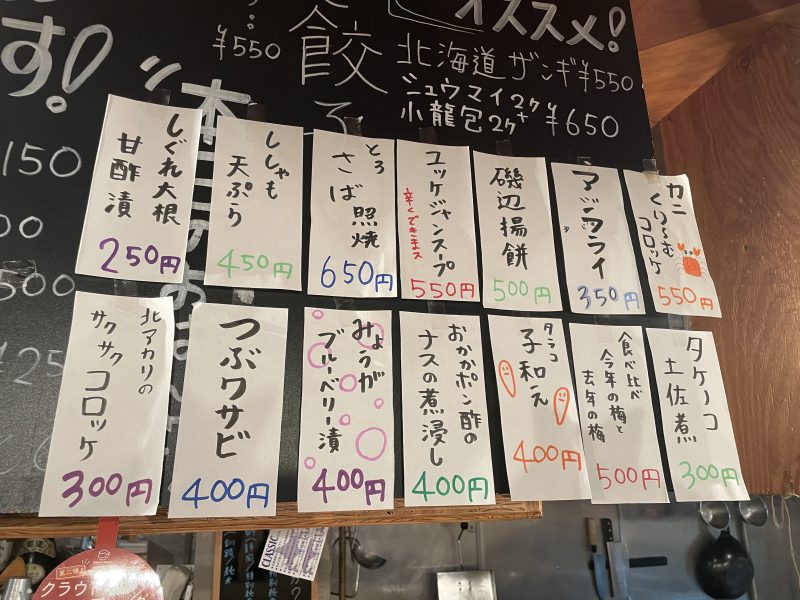 オススメ!
¥550
餃
北海道ザンギ¥550
シュウマイ2ケ
小龍包2ケ
¥650
す!
150
500
しぐれ大根
甘酢漬
250円
ししゃも
天ぷら
450円
とろ
さば照焼
650円
ユッケジャンスープ
辛くできまス
550円
磯辺揚餅
500円
アジフライ
350円
カニ
くりぃーむ
コロッケ
550円
北アカリの
サクサクコロッケ
300円
つぶワサビ
400円
みょうが
ブルーベリー漬
400円
おかかポン酢の
ナスの煮浸し
400円
タラコ
子和え
400円
食べ比べ
今年の梅と
去年の梅
500円
タケノコ
土佐煮
300円
CLASSIC
クラウド